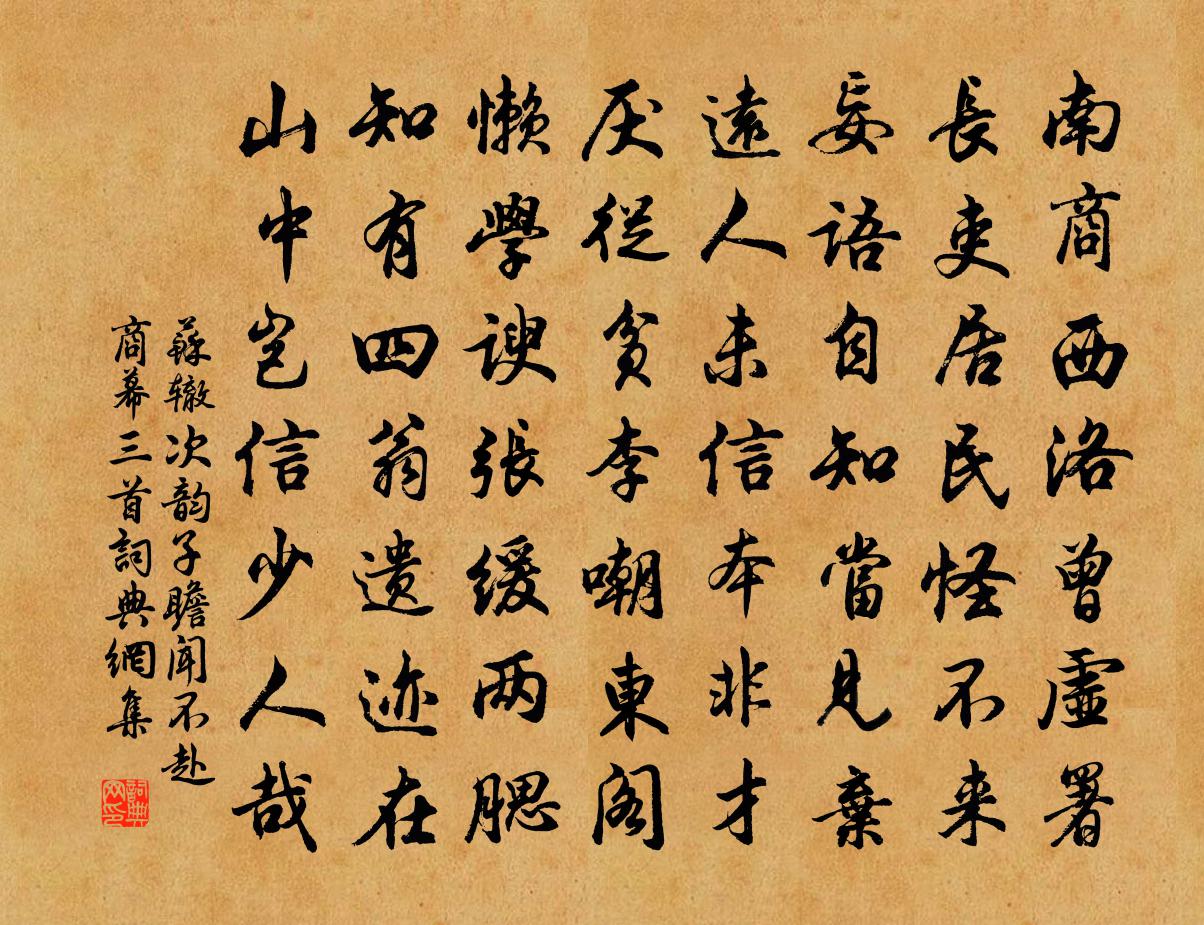 南商西洛曾虛署
長吏居民怪不来
妄語自知當見棄
遠人未信本非才
厌從貧李嘲東阁
懒學諛張缓两腮
知有四翁遗迹在
山中岂信少人哉
蘇辙次韵子瞻闻不赴
商幕三首詞典網集
詞典网印